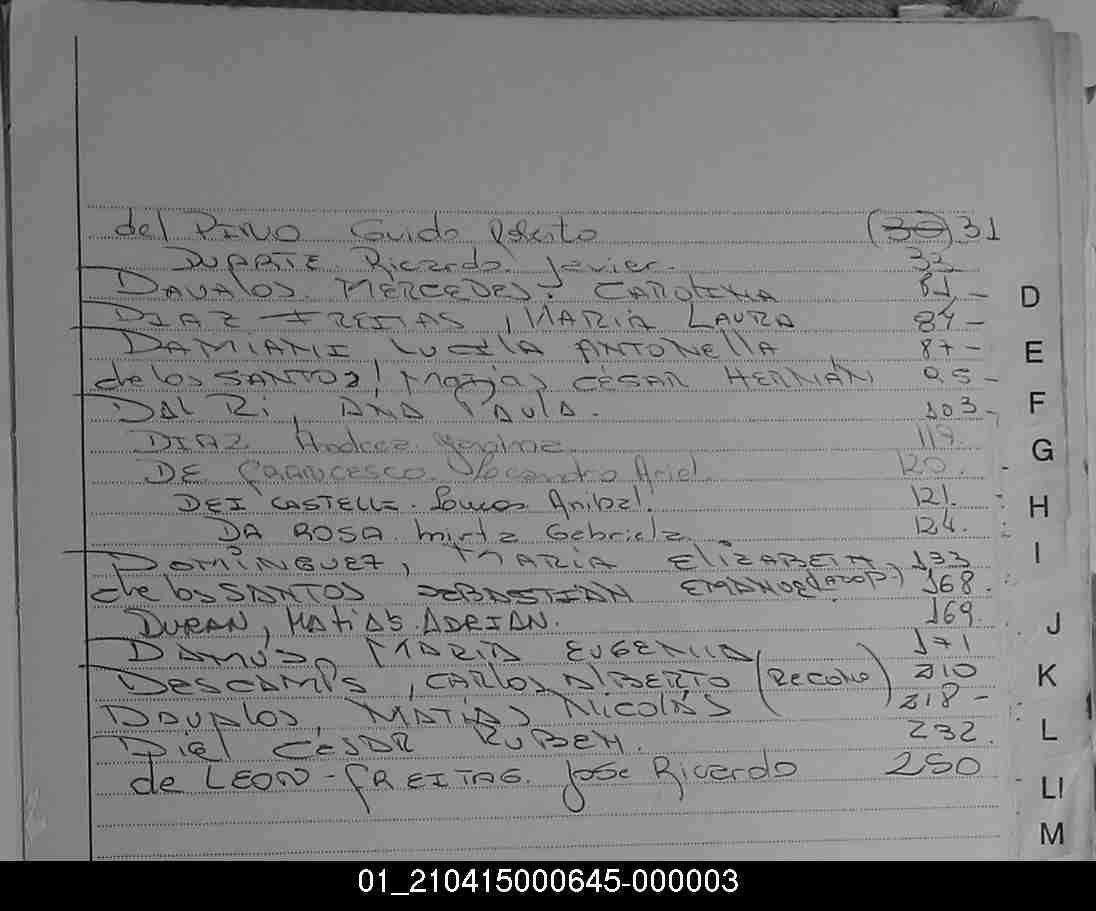 del PINO Guido Roberto (30) 31
DUARTE Ricardo Javier. 33
DAVALOS MERCEDES CAROLINA 81-
DIAZ FREITAS, MARIA LAURA 84-
DAMIANI, LUCILA ANTONELLA 87-
de los SANTOS, Matias CESAR HERNAN 95-
DAL RI, ANA PAULA. 103-
DIAZ 119.
DE FRANCESCO Leandro Ariel 120.
DEI CASTELLI. Lucas Anibal. 121.
DA ROSA Mirta Gabriela 124.
DOMINGUEZ, MARIA ELIZABETH 133
de los SANTOS SEBASTIAN EMANUEL (adop.) 168.
DURAN, MATIAS ADRIAN. 169.
DAMUS, MARIA EUGENIA 171
DESCAMPS, CARLOS ALBERTO (RECONO) 210
DAVALOS, MATIAS NICOLAS 218-
DIEL CESAR RUBEN. 232.
de LEON-FREITAS. José Ricardo 250
D
E
F
G
H
I
J
K
L
Ll
M
01_210415000645-000003